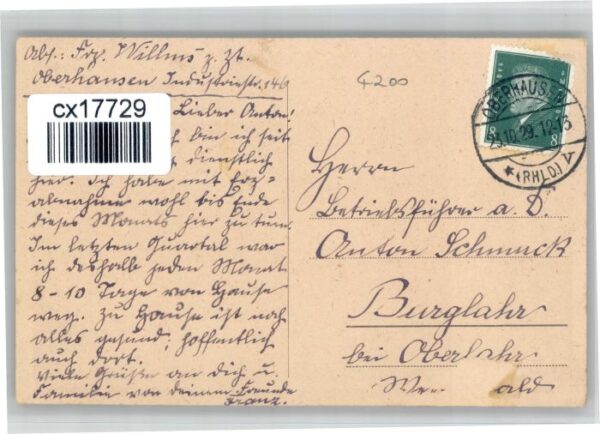 Abs.: Frz. Willms z. Zt.
Oberhausen Industriestr. 146
cx17729
Lieber Anton!
bin ich seit
dienstlich
hier. Ich habe mit
wohl bis Ende
dieses Monats hier zu tun.
Im letzten Quartal war
ich deshalb jeden Monat
8-10 Tage von Hause
weg. Zu Hause ist noch
alles gesund, hoffentlich
auch dort.
Viele Grüße an dich u.
Familie von deinem Freunde
Franz.
4200
OBERHAUSEN
10.29.12-13
* (RHLD.) A
8
8
Herrn
Betriebsführer a. D.
Anton Schmuck
Burglahr
bei Oberlahr